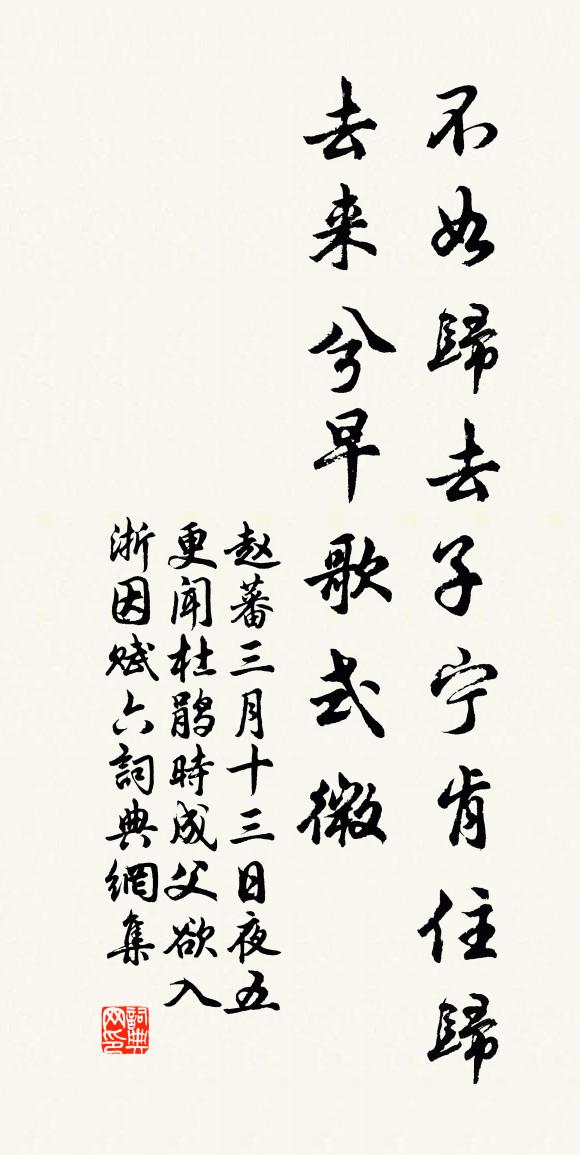 不如歸去子宁肯住歸
去来兮早歌式微
赵蕃三月十三日夜五
更闻杜鹃時成父欲入
浙因赋六詞典網集
詞典網印